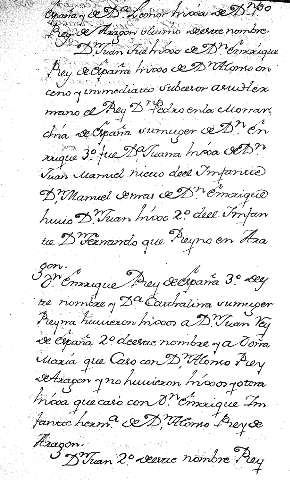 España y de D.ª Leonor hixa de D.n Po
Rey de Aragon ultimo de este nombre.
D.n Juan fue hixo de D.n Enrrique
Rey de España hixo de D.n Alonso on
ceno y inmediato subcesor a su Her
mano el Rey D.n Pedro en la Monar
chia de España su muger de D.n En
rrique 3.º fue D.ª Juana hixa de D.n
Juan Manuel nieto de el Imfante
D.n Manuel demas de D.n Enrrique
huvo D.n Juan hixo 2.º de el Imfan
te D.n Fernando que Reyno en Ara
gon.
D.n Enrrique Rey de España 3.º de es
te nombre y D.ª Catthalina su muger
Reyna huvieron hixos a D.n Juan Rey
de España 2.º de este nombre y a Doña
Maria que Caso con D.n Alonso Rey
de Aragon y no huvieron hixos y otra
hixa que caso con D.n Enrrique Im
fante herm.º de D.n Alonso Rey de
Aragon.
D.n Juan 2.º de este nombre Rey